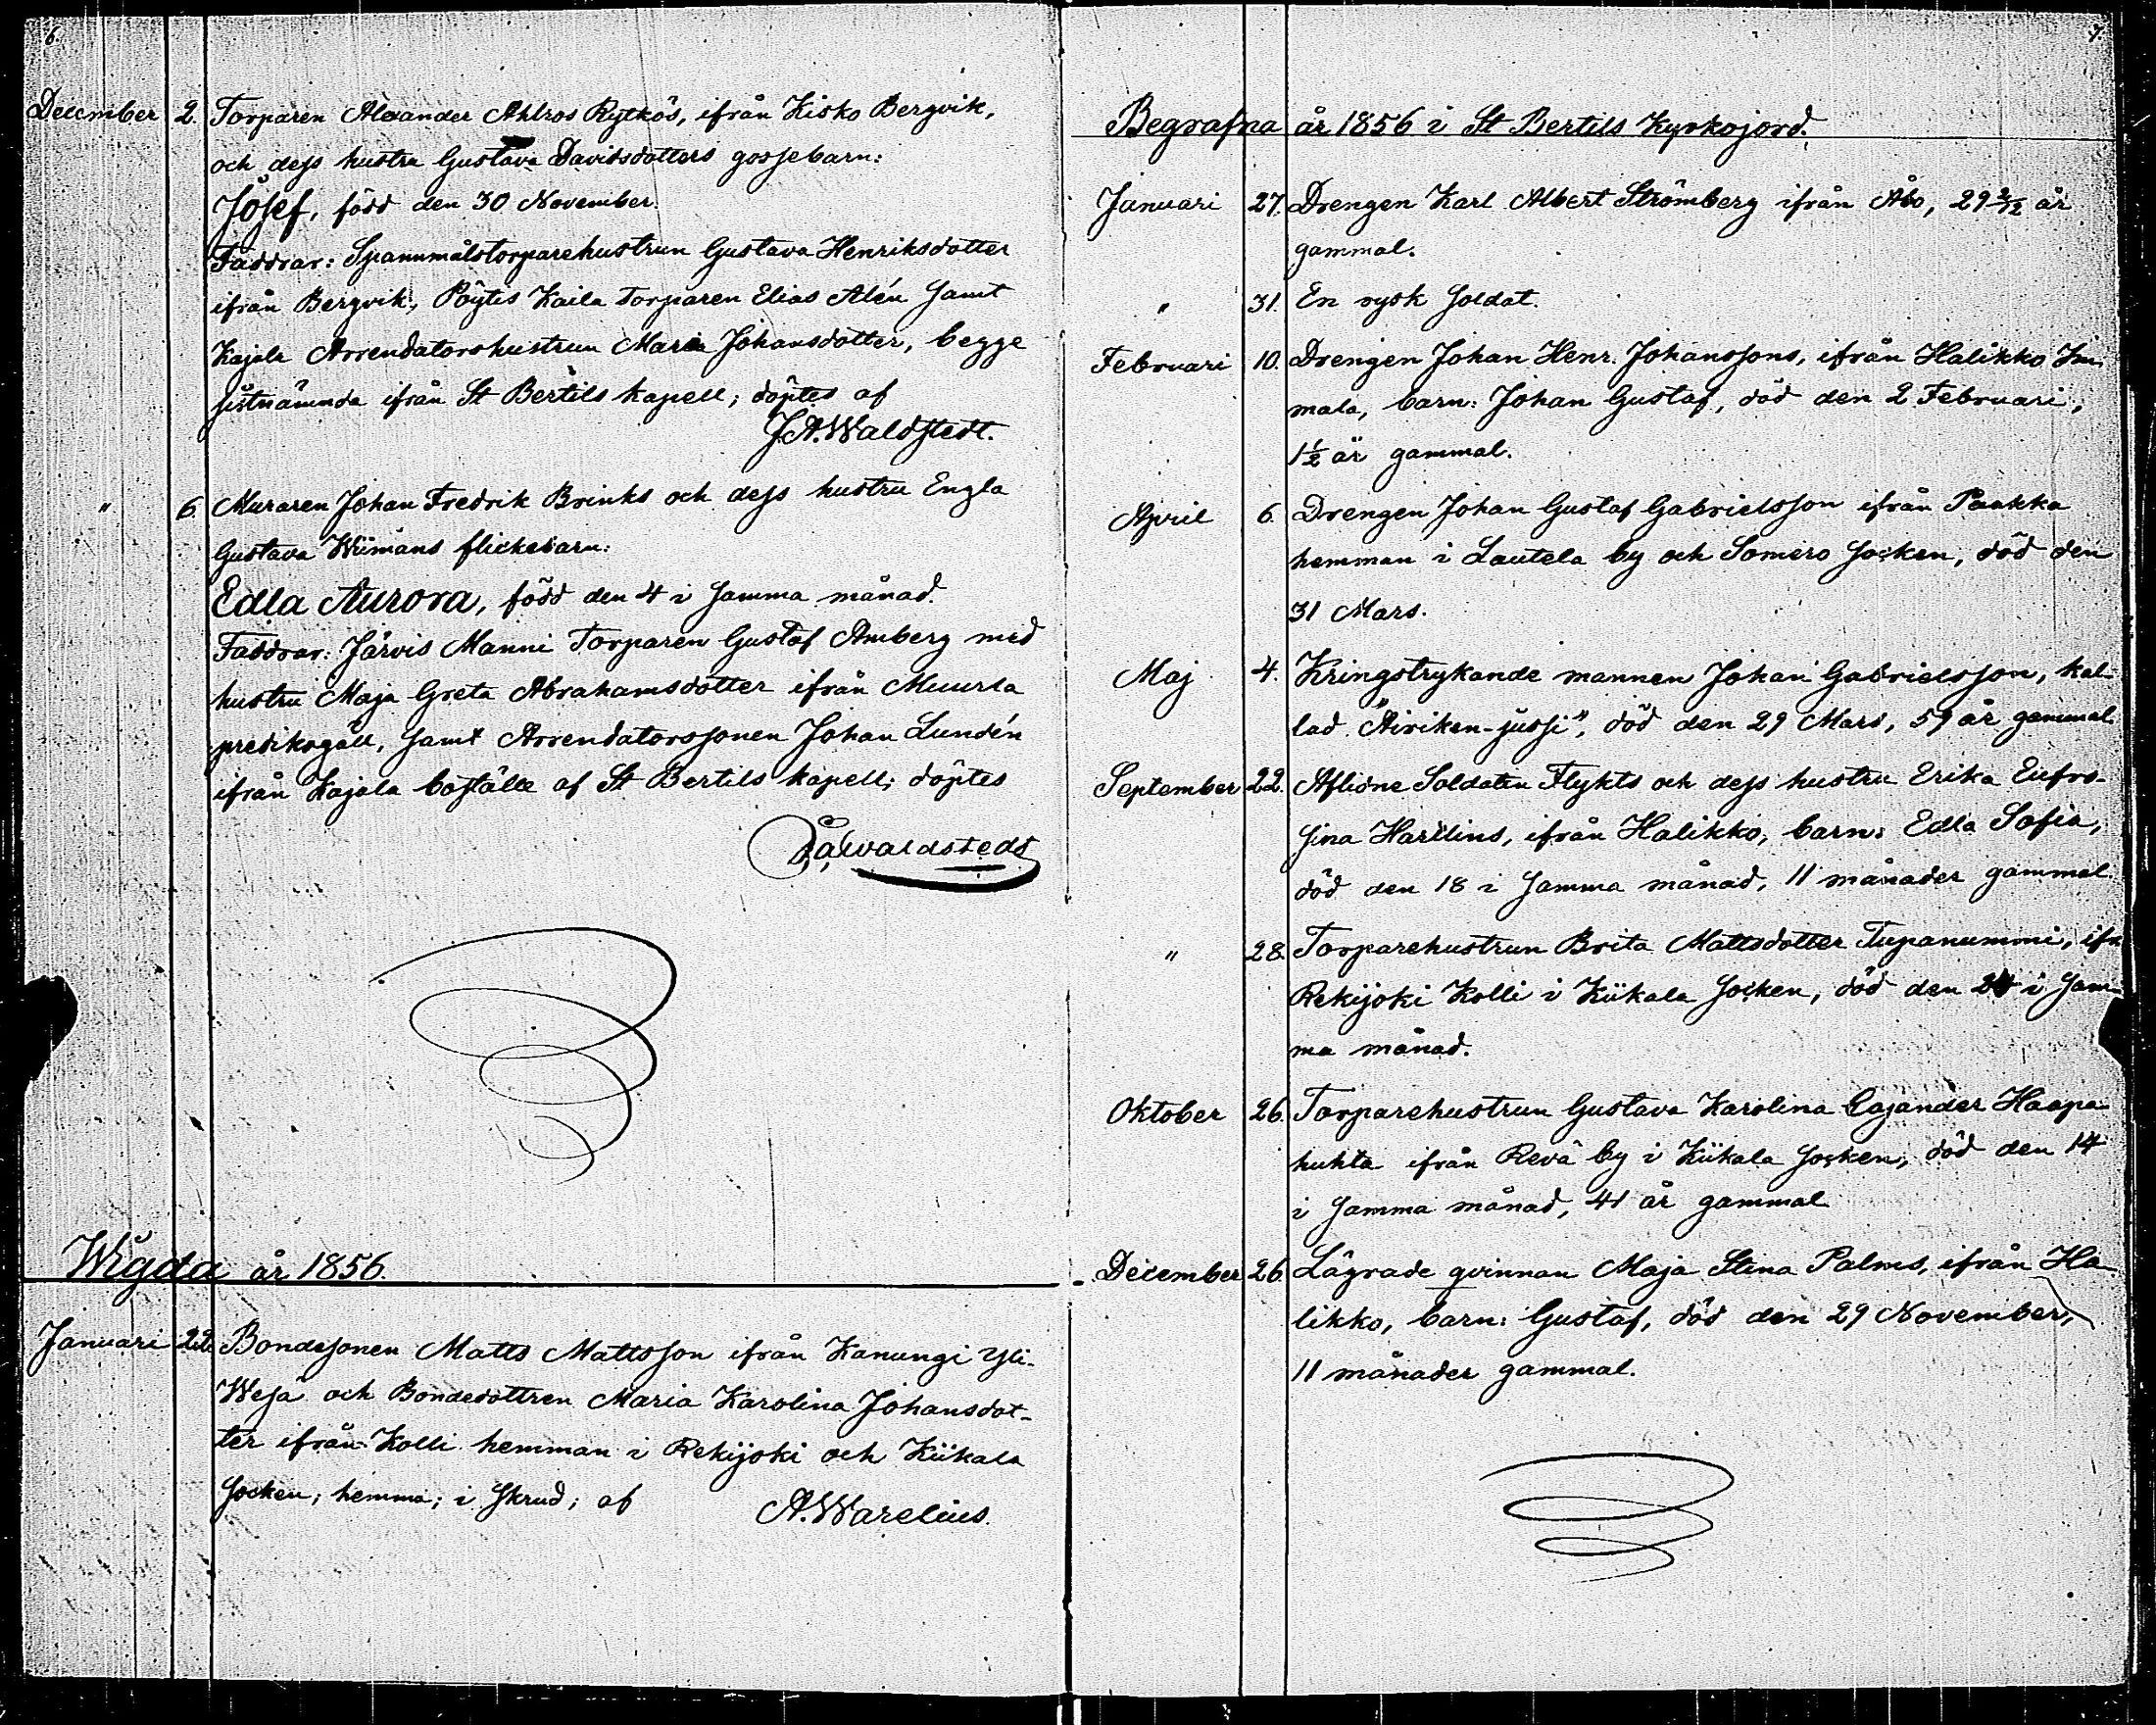 6.
December 2. Torparen Alexander Ahlros Rytkös, ifrån Kisko Bergvik,
och dess hustru Gustava Davidsdotters gossebarn:
Josef, född den 30 November.
Faddrar: Spannmålstorparehustrun Gustava Henriksdotter
ifrån Bergvik, Pöytis Kaila Torparen Elias Alén samt
Kajala Arrendatorshustrun Maria Johansdotter, begge
sistnämnda ifrån St Bertils kapell; döptes af
J.A. Waldstedt.
" 6. Muraren Johan Fredrik Brinks och dess hustru Engla
Gustava Wiimans flickebarn:
Edla Aurora, född den 4 i samma månad.
Faddrar: Järvis Manni Torparen Gustaf Amberg med
hustru Maja Greta Abrahamsdotter ifrån Muurla
predikogäll, samt Arrendatorssonen Johan Lundén
ifrån Kajala boställe af St Bertils kapell; döptes
Wigda år 1856.
Januari 22. Bondesonen Matts Mattsson ifrån Kanungi Yli-
Wesa och Bondedottren Maria Karolina Johansdot-
ter ifrån Kolli hemman i Rekijoki och Kiikala
Socken; hemma; i skrud; af A. Warelius.
7.
Begrafna år 1856 i St Bertils Kyrkojord.
Januari 27. Drengen Karl Albert Strömberg ifrån Åbo, 29 2/12 år
gammal.
" 31. En rysk soldat.
Februari 10. Drengen Johan Henr. Johanssons, ifrån Halikko Im-
mala, barn: Johan Gustaf, död den 2 Februari,
1½ år gammal.
April 6. Drengen Johan Gustaf Gabrielsson ifrån Paakka
hemman i Lautela by och Somero Socken, död den
31 Mars.
Maj 4. Kringstrykande mannen Johan Gabrielsson, kal-
lad "Airiken-jussi", död den 29 Mars, 59 år gammal.
September 22. Aflidne Soldaten Flykts och dess hustru Erika Eufro-
sina Hartlins, ifrån Halikko, barn: Edla Sofia,
död den 18 i samma månad, 11 månader gammal.
" 28. Torparehustrun Brita Mattsdotter Tupanummi, ifn
Rekijoki Kolli i Kiikala Socken, död den 24 i sam-
ma månad.
Oktober 26. Torparehustrun Gustava Karolina Cajander Haapa-
huhta ifrån Revä by i Kiikala Socken, död den 14
i samma månad, 41 år gammal
December 26. Lägrade qvinnan Maja Stina Palms, ifrån Ha-
likko, barn: Gustaf, död den 29 November,
11 månader gammal.